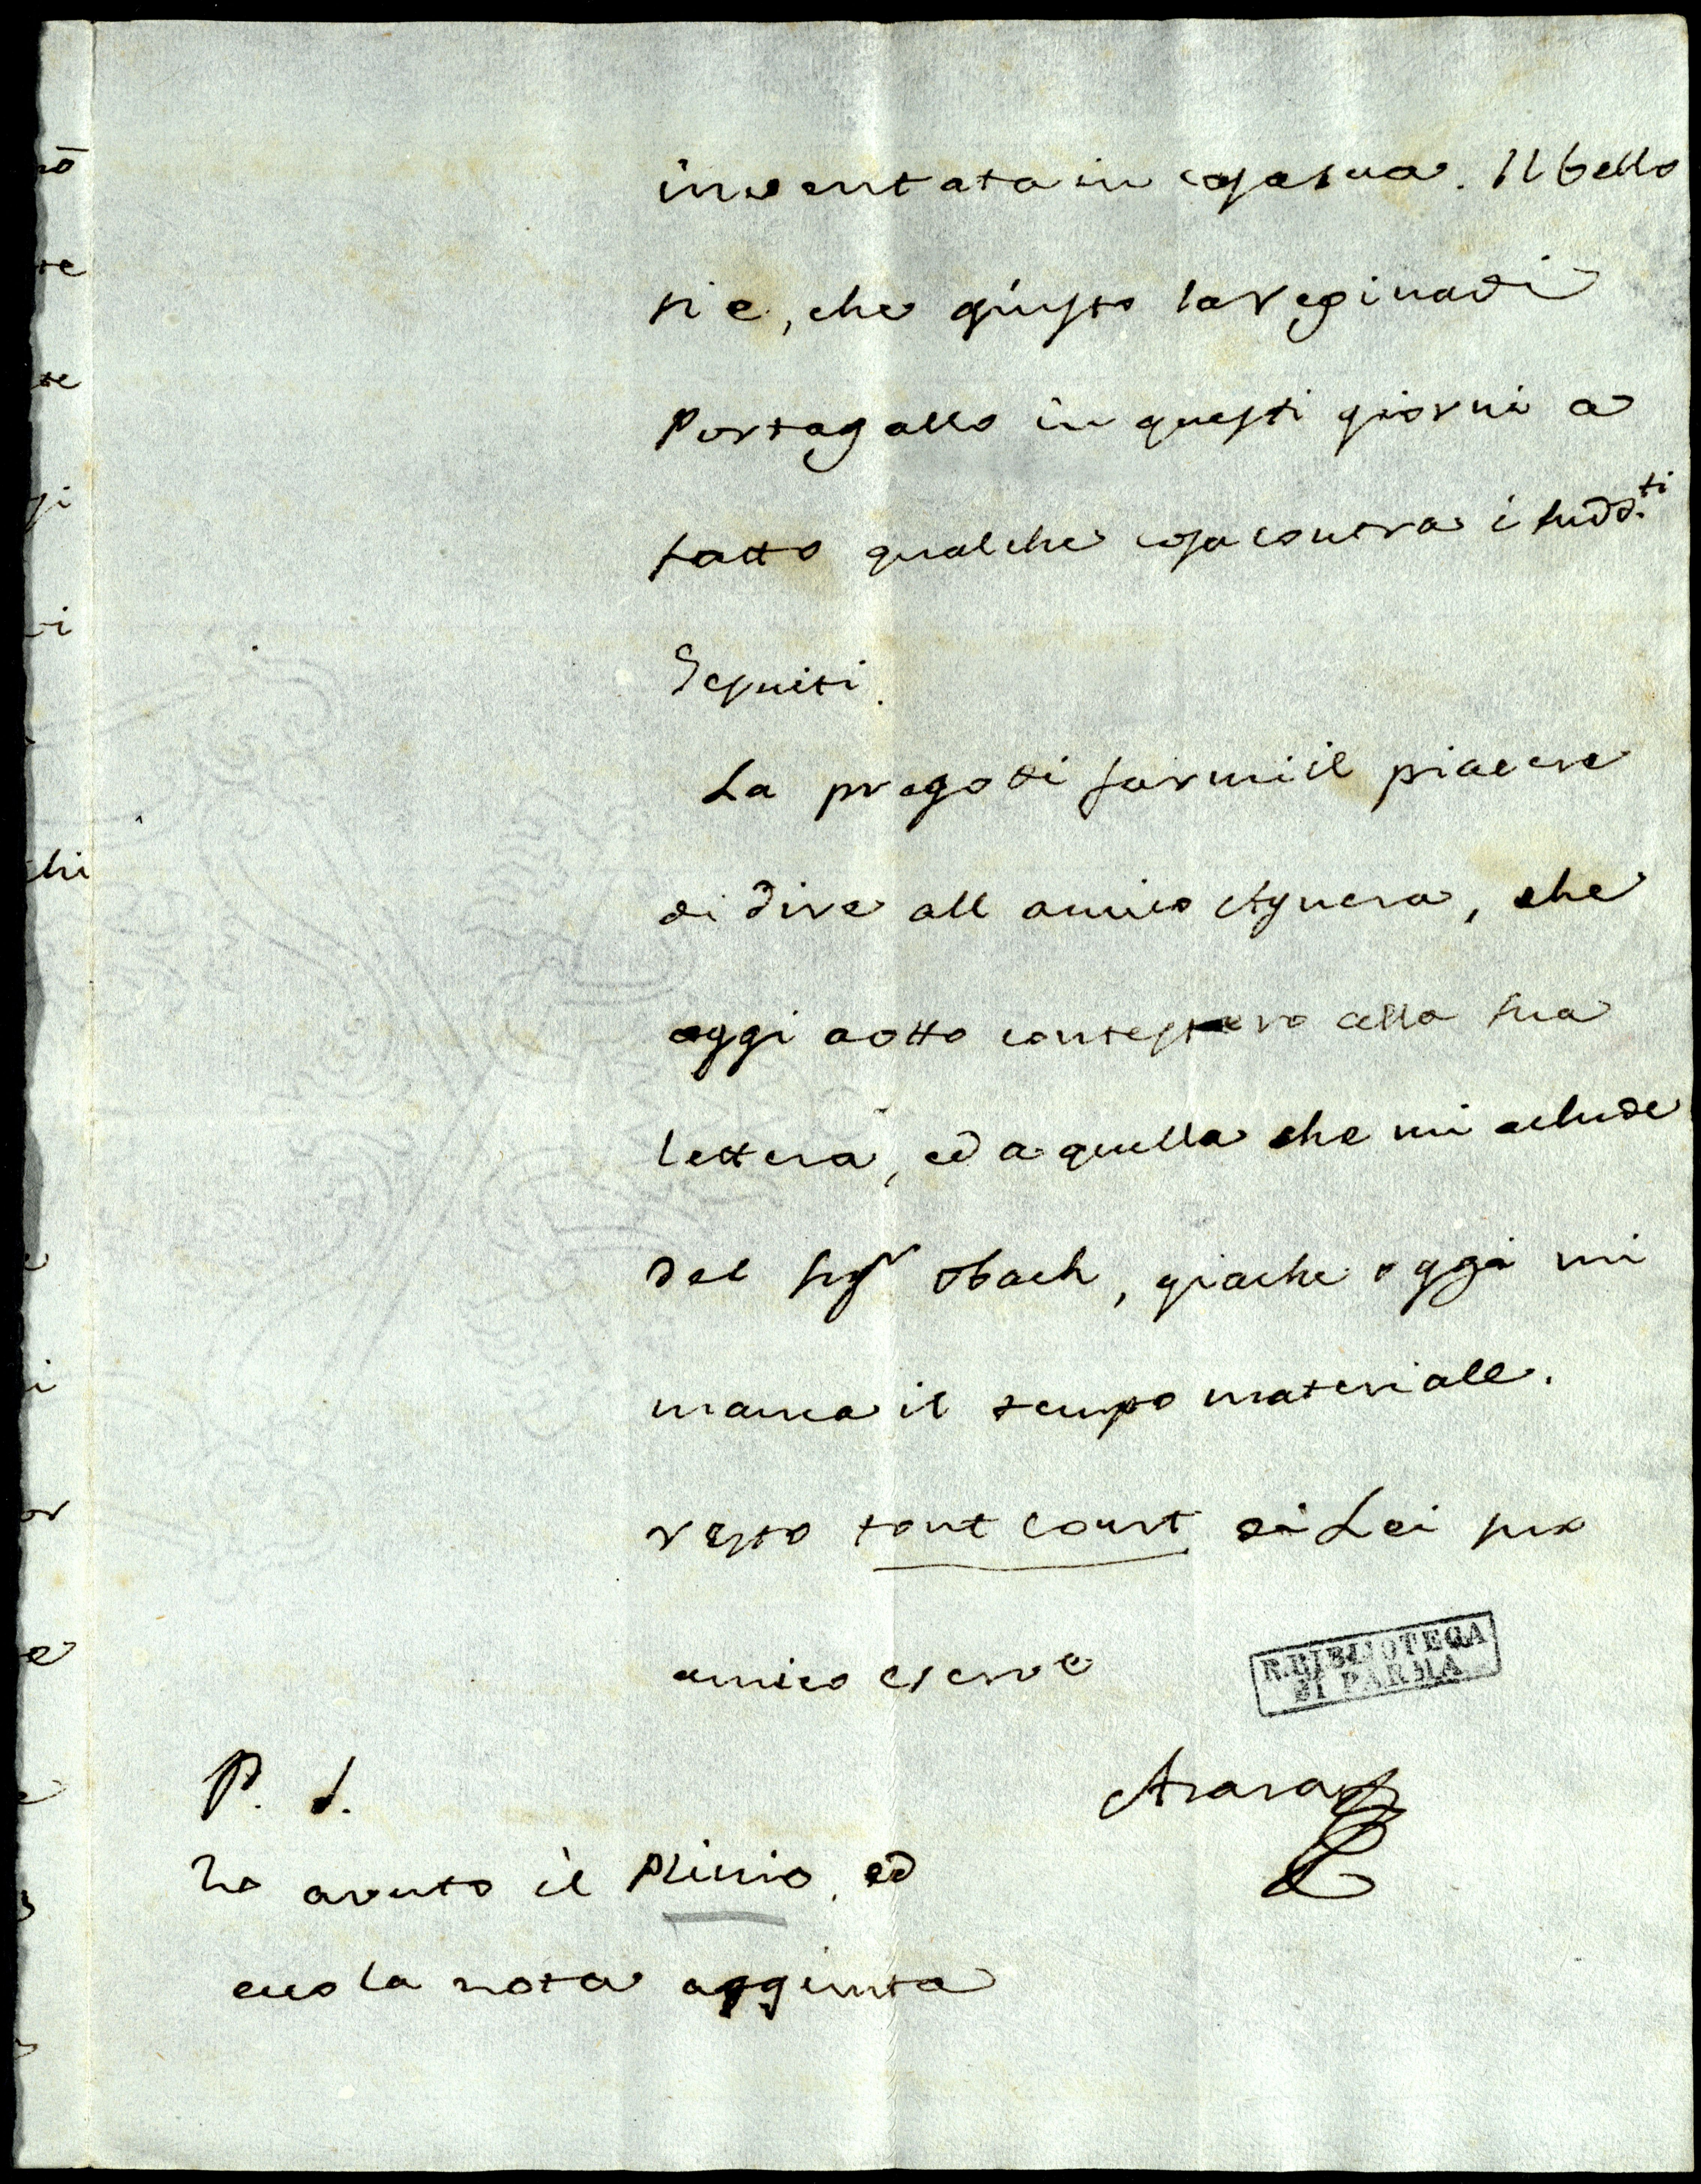 inventata in casa sua. Il bello
si e, che giusto la regina di
Portogallo in questi giorni a
fatto qualche cosa contra i sudd.ti
Gesuiti.
La prego di farmi il piacere
di dire all amico Aguera, che
oggi aotto contestero alla sua
lettera, ed a quella che mi aclude
del Sigr Obach, giache oggi mi
manca il tempo materiale.
resto tout court di Lei suo
amico e serve
R. BIBLIOTECA
DI PARMA
Azara
P. S.
ho avuto il Plinio, ed
ecco la nota aggiunta